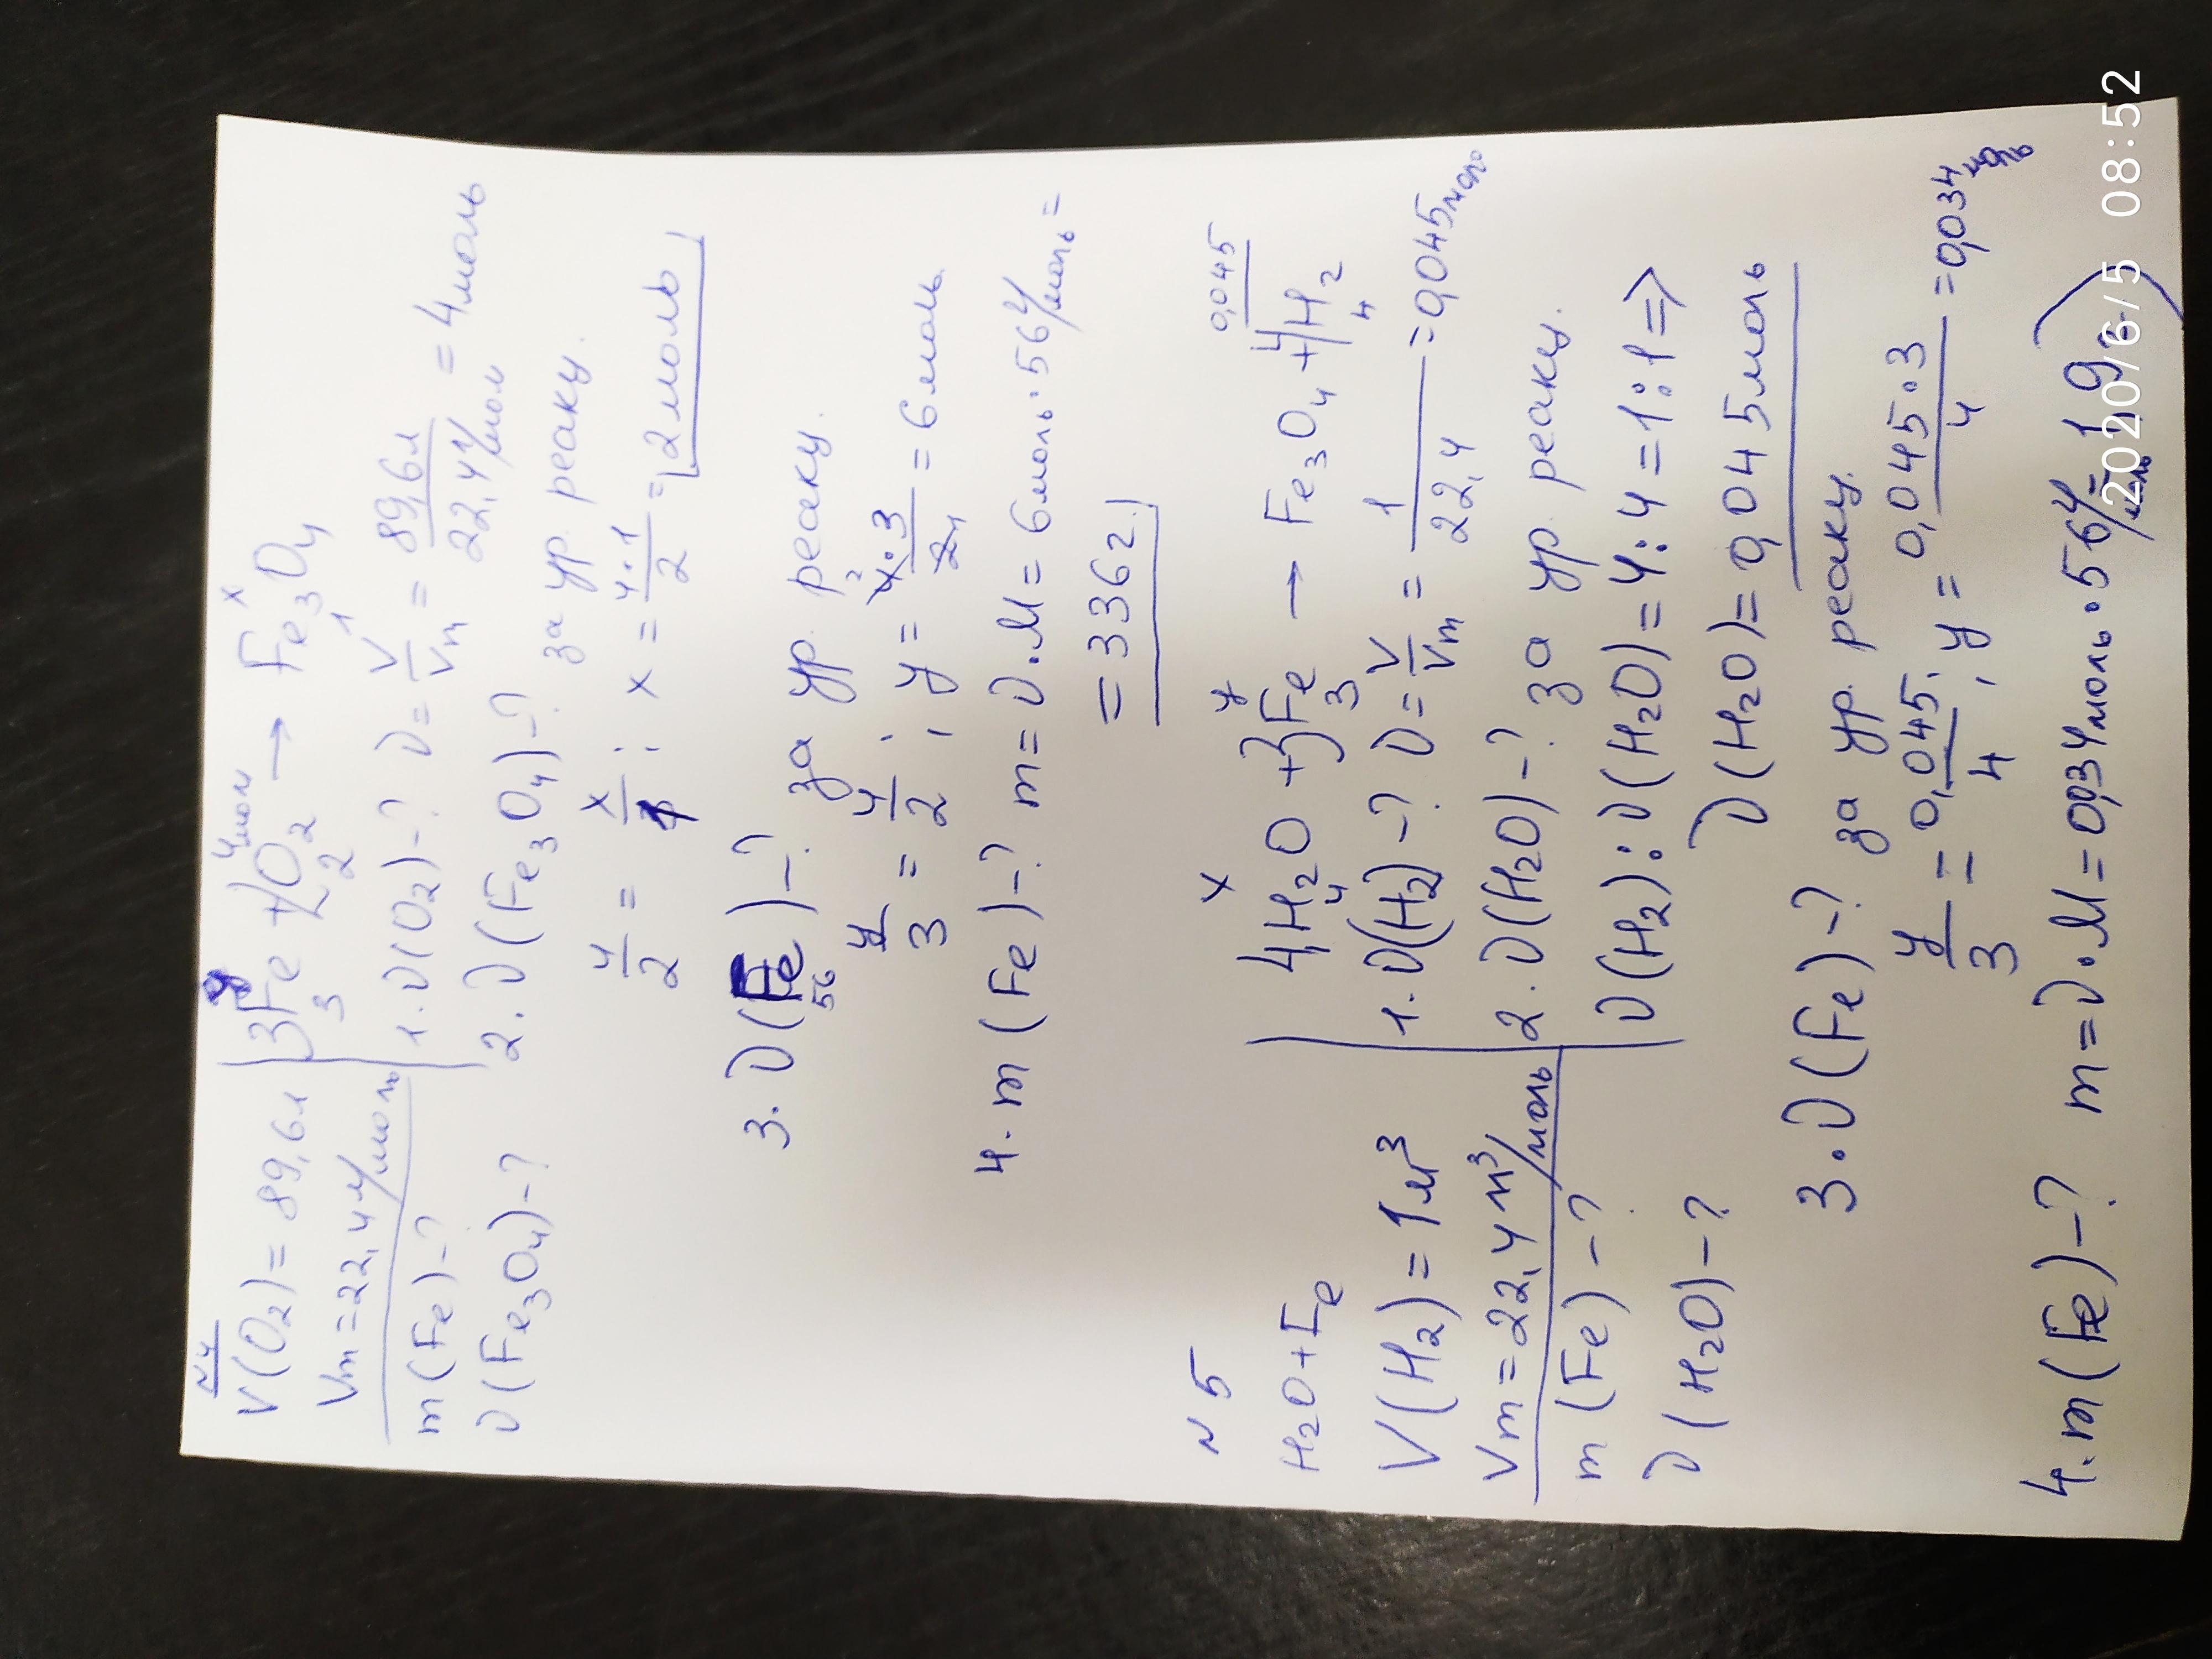 N4
V(O2) = 89,6л
Vm = 22,4 л/моль
m(Fe)-?
ν(Fe3O4)-?
y 4моль x
3Fe + 2O2 → Fe3O4
3 2 1
1. ν(O2)-? ν = V/Vm = 89,6л/22,4 л/мол = 4моль
2. ν(Fe3O4)-? за ур. реакц.
4/2 = x/1; x = 4·1/2 = 2 моль
3. ν(Fe)-? за ур. реакц.
56
y/3 = 4/2; y = 4·3/2 = 6 моль
4. m(Fe)-? m = ν·M = 6моль·56 г/моль =
= 336г
N5
H2O + Fe
V(H2) = 1м³
Vm = 22,4 м³/моль
m(Fe)-?
ν(H2O)-?
x y 0,045
4H2O + 3Fe → Fe3O4 + 4H2
4 3 4
1. ν(H2)-? ν = V/Vm = 1/22,4 = 0,045моль
2. ν(H2O)-? за ур. реакц.
ν(H2):ν(H2O) = 4:4 = 1:1 =>
ν(H2O) = 0,045моль
3. ν(Fe)-? за ур. реакц.
y/3 = 0,045/4; y = 0,045·3/4 = 0,034 моль
4. m(Fe)-? m = ν·M = 0,034моль·56 г/моль = 1,9г
2020/6/5 08:52